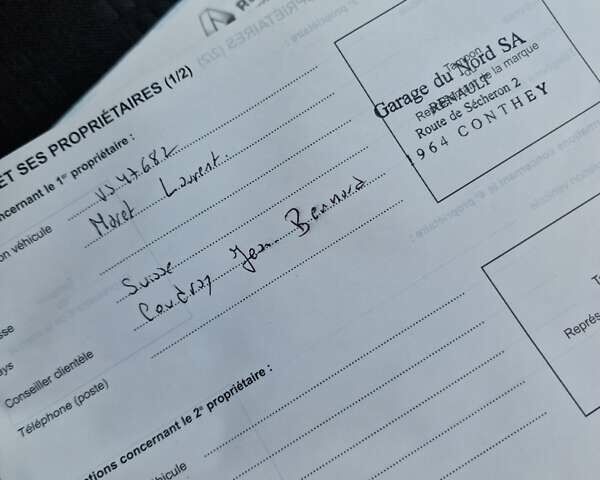 ET SES PROPRIÉTAIRES (1/2)
Tampon
Garage du Nord SA
RENAULT
de la marque
Route de Sécheron 2
1964 CONTHEY
concernant le 1er propriétaire :
on véhicule VS 47.682
Moret Laurent
sse
ays Suisse
Conseiller clientèle Jean Bernard
Téléphone (poste)
ations concernant le 2e propriétaire :
véhicule
Représ